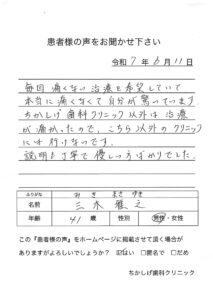 患者様の声をお聞かせ下さい
令和 7年 6月 11日
毎回 痛くない治療を希望していて
本当に痛くなくて自分が驚いています
ちかしげ歯科クリニック以外は治療
が痛かったので、こちら以外のクリニック
には行けないです。
説明も丁寧で優しい方ばかりでした。
ふりがな みき まさゆき
名前 三木 雅之
年齢 41 歳 性別 男性・女性
この『患者様の声』をホームページに掲載させて頂く場合が
ありますがよろしいでしょうか? ☑はい □匿名で □だめ
ちかしげ歯科クリニック